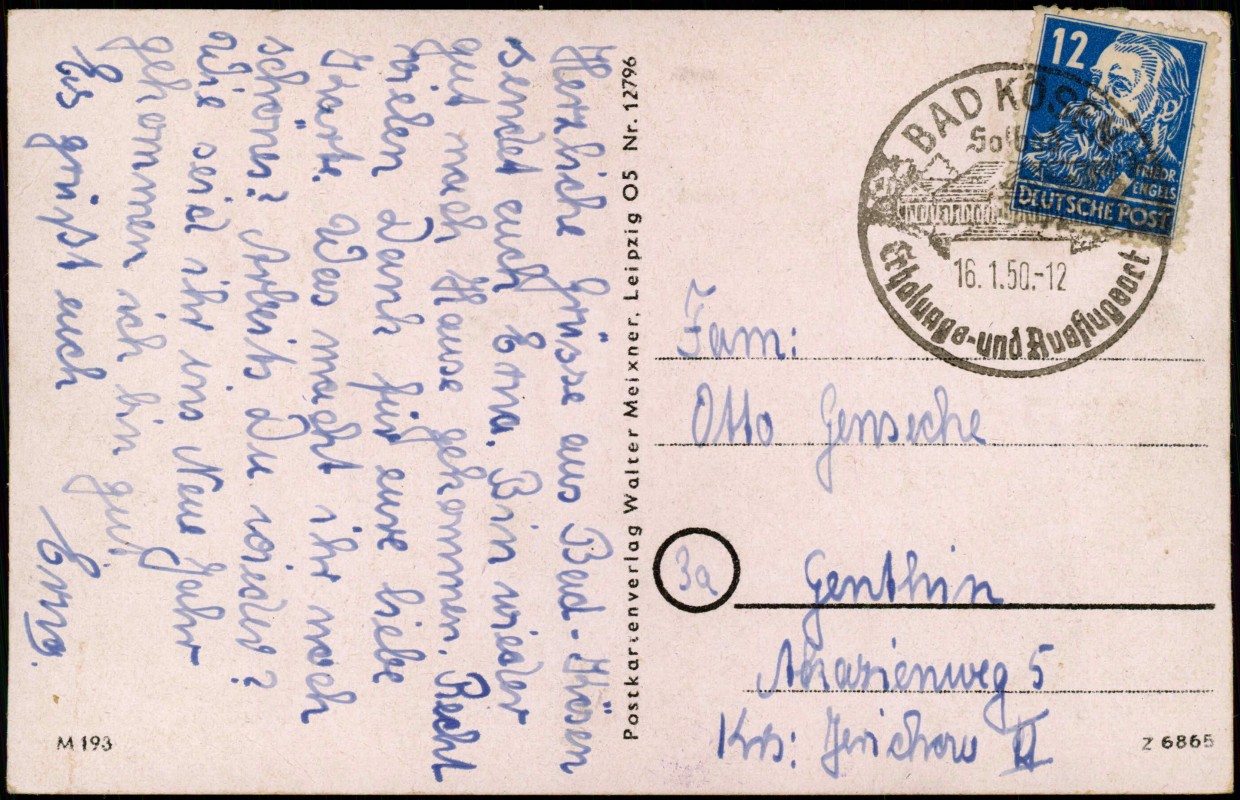 Herzliche Grüsse aus Bad-Kösen
sendet euch Erna. Bin wieder
gut nach Hause gekommen. Recht
vielen Dank für eure liebe
Karte. Was macht ihr noch
schönes? Arbeits Du wieder?
Wie seid ihr ins Neue Jahr
gekommen ich bin gut.
Es grüßt euch
Erna.
M 193
Postkartenverlag Walter Meixner, Leipzig O5 Nr. 12796
12
FRIEDR. ENGELS
DEUTSCHE POST
BAD KÖSEN
16.1.50.-12
Erholungs- und Ausflugsort
Fam:
Otto
3a
Genthin
Akazienweg 5
Krs: Jerichow II
Z 6865